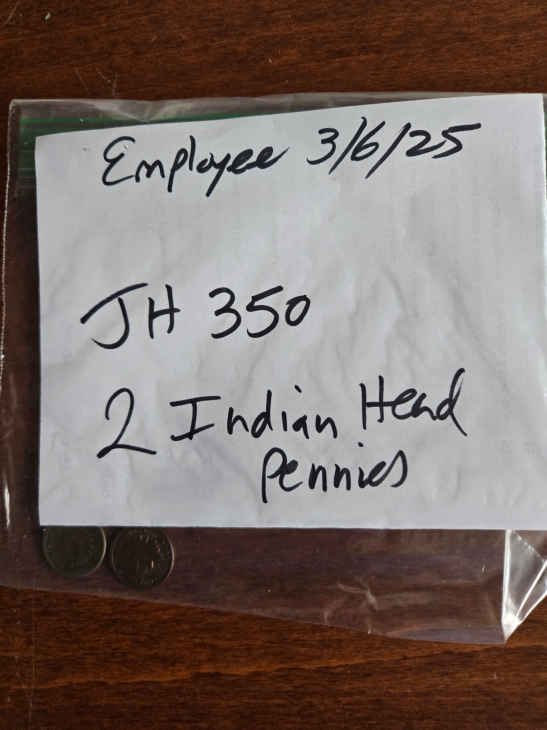 Employee 3/6/25
JH 350
2 Indian Head
Pennies